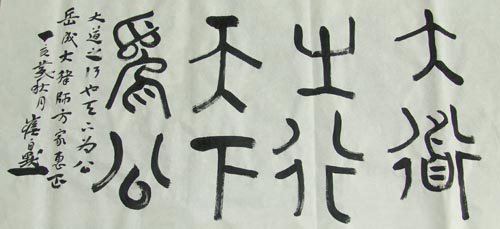 大道
之行
天下
爲公
大道之行也天下为公
岳成大律師方家惠正
丁亥秋月